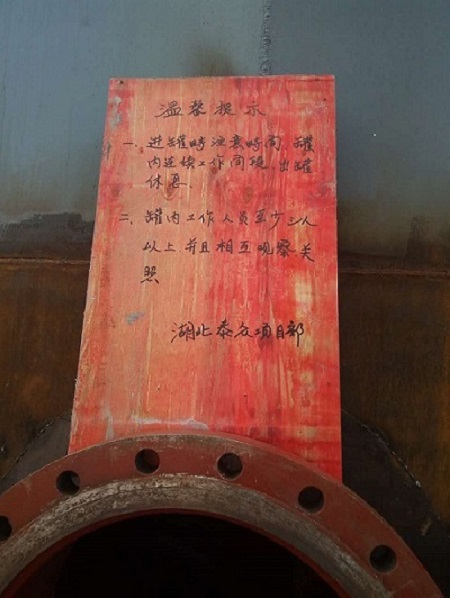 温馨提示
一、进罐时注意时间、罐
内连续工作间隙、出罐
休息.
二、罐内工作人员至少三人
以上并且相互观察关
照
湖北泰众项目部